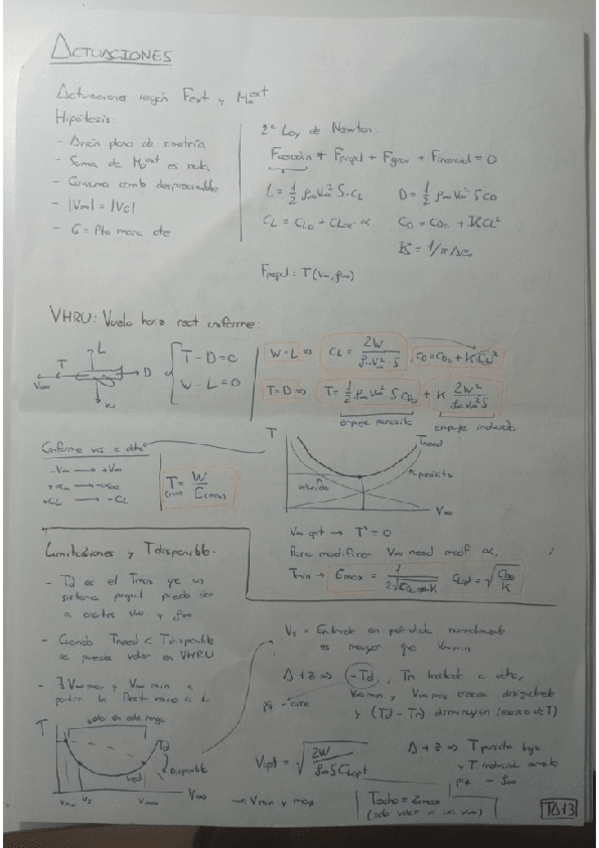 ACTUACIONES
Actuaciones según Fext y Mext
Hipótesis:
- Avión plano de simetría
- Suma de Mext es nula
- Consumo comb despreciable
- |V∞| = |VG|
- G = Pto masa cte
2ª Ley de Newton:
Faerodin + Fpropul + Fgrav + Finercial = 0
L = 1/2 ρ∞V∞² S·CL
D = 1/2 ρ∞V∞² S CD
CL = CL0 + CLα · α
CD = CD0 + KCL²
K = 1/π Λe
Fpropul: T(V∞, ρ∞)
VHRU: Vuelo horiz rect uniforme:
L
T
D
V∞
T - D = 0
W - L = 0
W = L ⇒ CL = 2W / ρ∞V∞²·S
CD = CD0 + K CL²
T = D ⇒ T = 1/2 ρ∞V∞² S CD0 + K 2W² / ρ∞V∞²S
empuje parásito
empuje inducido
-V∞ → +V∞
+CL → -CL
Tmin = W / Emax
T
Tneed
parásito
inducido
V∞
V∞ opt → T' = 0
Para modificar V∞ need modf α
Tmin → Emax = 1 / 2√CD0·K
CLopt = √CD0 / K
Limitaciones y Tdisponible.
- Td es el Tmax que un
sistema propul puede dar
a ciertos V∞ y ρ∞
- Cuando Tneed < Tdisponible
se puede volar en VHRU
- ∃ V∞ max y V∞ min a
T
volar en este rango
Td
Disponible
Vs
Vmax
V∞
→ Vmin y max
Vs = Entrada en pérdida normalmente
es mayor que Vmin
Δ + z ⇒ -Td, Tn traslada a dcha,
V∞ min y V∞ max crecen
y (Td - Tn) disminuyen (exceso de T)
Vopt = √2W / ρ∞SCLopt
Δ + z ⇒ T parásito baja
y T inducido
Techo = Zmax
(solo volar a un V∞)
TΔ13